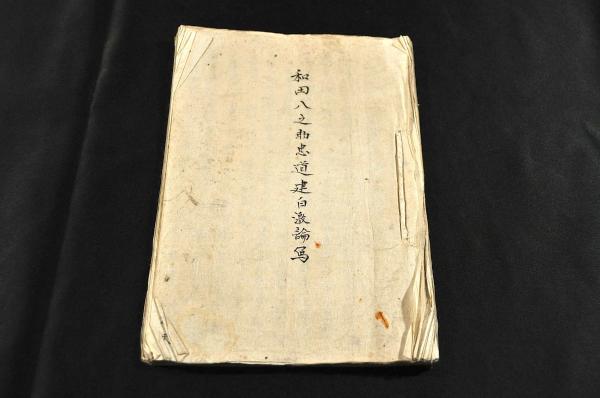 和田八之助忠道建白激論写